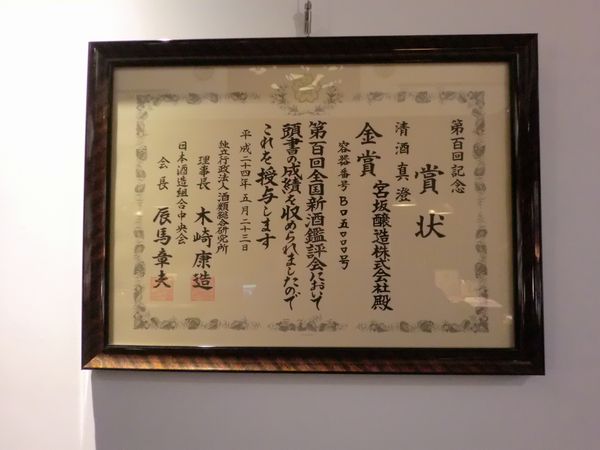 第百回記念
賞状
清酒 真澄
宮坂醸造株式会社殿
金賞
容器番号 B05000号
第百回全国新酒鑑評会において
頭書の成績を収められましたので
これを授与します
平成二十四年五月二十三日
独立行政法人酒類総合研究所
理事長 木崎康造
日本酒造組合中央会
会長 辰馬章夫